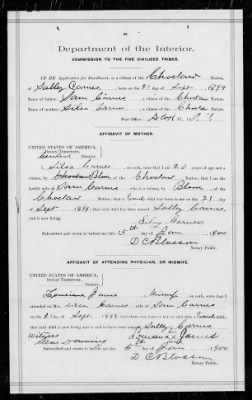 Department of the Interior,
COMMISSION TO THE FIVE CIVILIZED TRIBES.
IN RE Application for Enrollment, as a citizen of the Choctaw Nation,
of Salley Carnes, born on the 21 day of Sept. 1899
Name of Father: Sam Carnes, a citizen of the Choctaw Nation.
Name of Mother: Silea Carnes, a citizen of the Choctaw Nation.
Post-Office:
AFFIDAVIT OF MOTHER.
UNITED STATES OF AMERICA,
INDIAN TERRITORY,
Central District.
I, Silea Carnes, on oath, state that I am 23 years of age and a
citizen, by Blood, of the Choctaw Nation; that I am the
lawful wife of Sam Carnes, who is a citizen, by Blood, of the
Choctaw Nation; that a female child was born to me on 21 day
of Sept. 1899, that said child has been named Salley Carnes,
and is now living.
Subscribed and sworn to before me this 5th day of Jan 1900
D C Blossom
Notary Public.
AFFIDAVIT OF ATTENDING PHYSICIAN, OR MIDWIFE.
UNITED STATES OF AMERICA,
INDIAN TERRITORY,
I, Louisiana James, a midwife, on oath, state that I
attended on Mrs. Carnes, wife of Sam Carnes
on the 21 day of Sept. 1899, that there was born to her on said date a female child;
that said child is now living and is said to have been named Salley Carnes.
Witness
Subscribed and sworn to before me this 5th day of Jan 1900
D C Blossom
Notary Public.